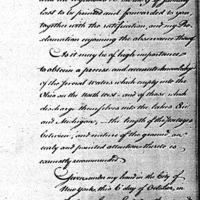 last to be printed and forwarded to you
together with the ratification, and my Pro-
clamation enjoining the observance thereof
As it may be of high importance
to obtain a precise and accurate knowledge
of the several waters which empty into the
Ohio on the North West and of those which
discharge themselves into the lakes Erie
and Michigan, the length of the portages
between, and nature of the ground, an
early and pointed attention thereto is
earnestly recommended
Given under my hand in the City of
New York, this 6 day of October, in